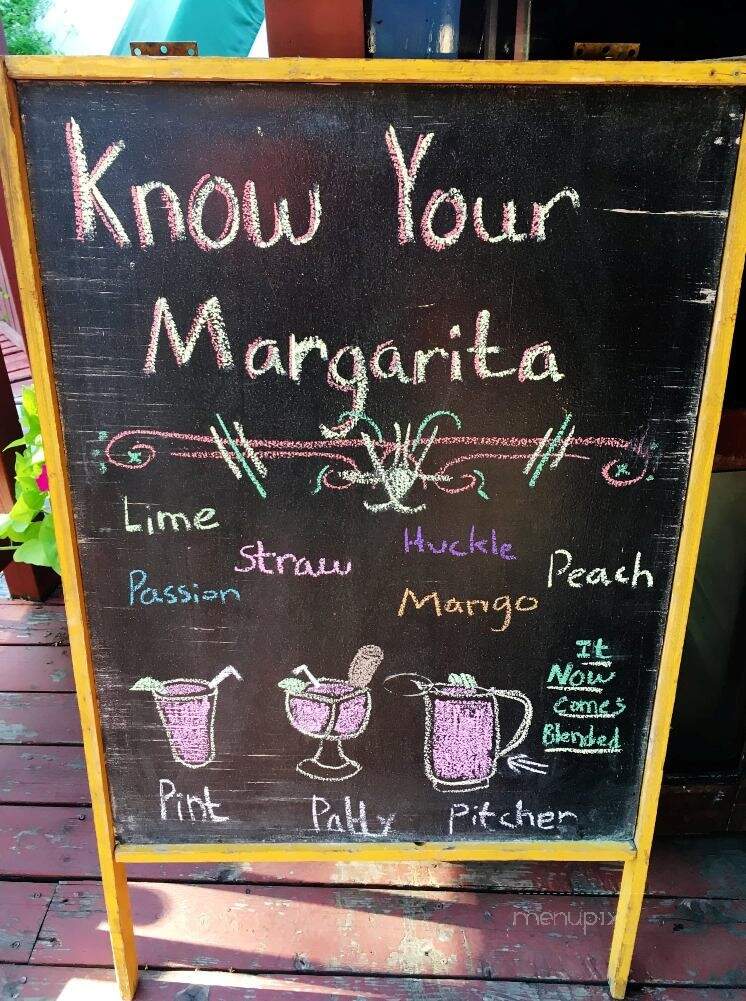 Know Your
Margarita
Lime
Straw
Huckle
Peach
Passion
Mango
It
Now
comes
Blended
Pint
Patty
Pitcher
menupix